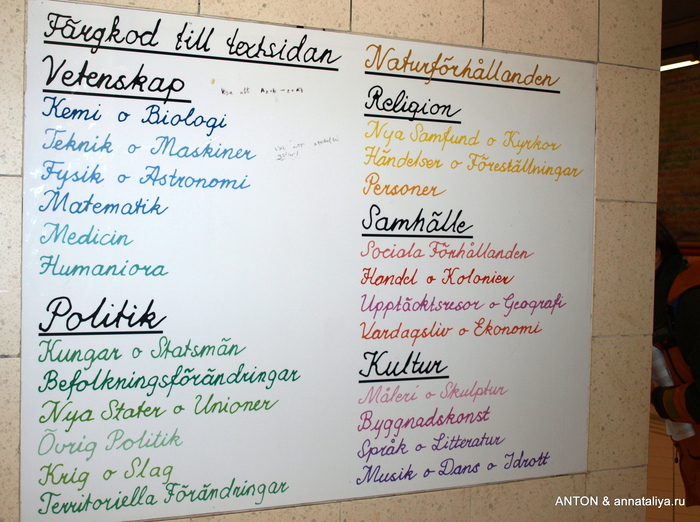 Färgkod till textsidan
Vetenskap
Kemi o Biologi
Teknik o Maskiner
Fysik o Astronomi
Matematik
Medicin
Humaniora
Politik
Kungar o Statsmän
Befolkningsförändringar
Nya Stater o Unioner
Övrig Politik
Krig o Slag
Territoriella Förändringar
Naturförhållanden
Religion
Nya Samfund o Kyrkor
Händelser o Föreställningar
Personer
Samhälle
Sociala Förhållanden
Handel o Kolonier
Upptäcktsresor o Geografi
Vardagsliv o Ekonomi
Kultur
Måleri o Skulptur
Byggnadskonst
Språk o Litteratur
Musik o Dans o Idrott
ANTON & annataliya.ru